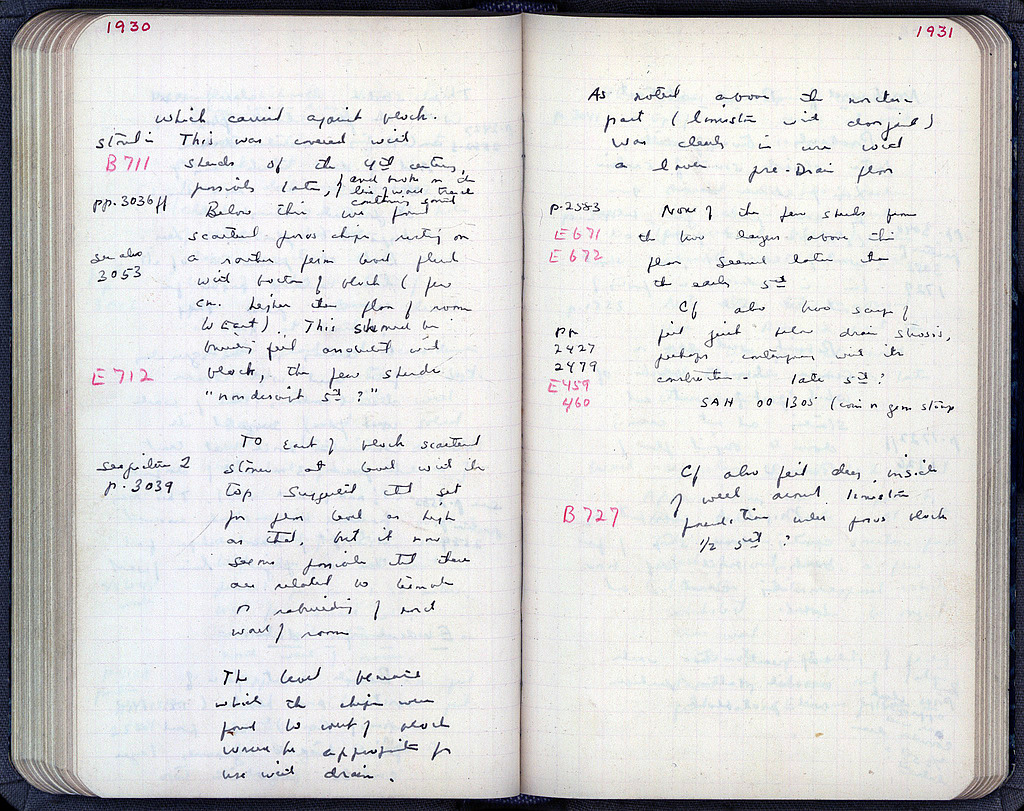 1930
which carried against block.
This was covered with
B 711
sherds of the 4th century,
possibly later,
pp. 3036 ff
Below this we found
scattered poros chips resting on
see also
3053
a rather firm level flush
with bottom of block (few
cm. higher than floor of room
to East). This seemed in
block, the few sherds
E 712
"nondescript 5th ?"
To East of block scattered
see picture 2
p. 3039
stones at level with its
top suggested that set
for floor level as high
as that, but it now
seems possible that these
are related to
or rebuilding of north
wall of room
The level beneath
which the chips were
found to west of block
would be appropriate for
use with drain.
1931
As noted above the northern
part (limestone with
was clearly in use with
a lower pre-Drain floor
p. 2583
None of the few sherds from
E 671
the two layers above this
E 672
floor seemed later than
the early 5th
Cf also two scraps of
pp
2427
2479
perhaps contemporary with its
construction - late 5th ?
E 459
460
SAH 00 1305 (coin or gem stamp
Cf also fill deep inside
of well around limestone
B 727
foundation under poros block
1/2 5th ?